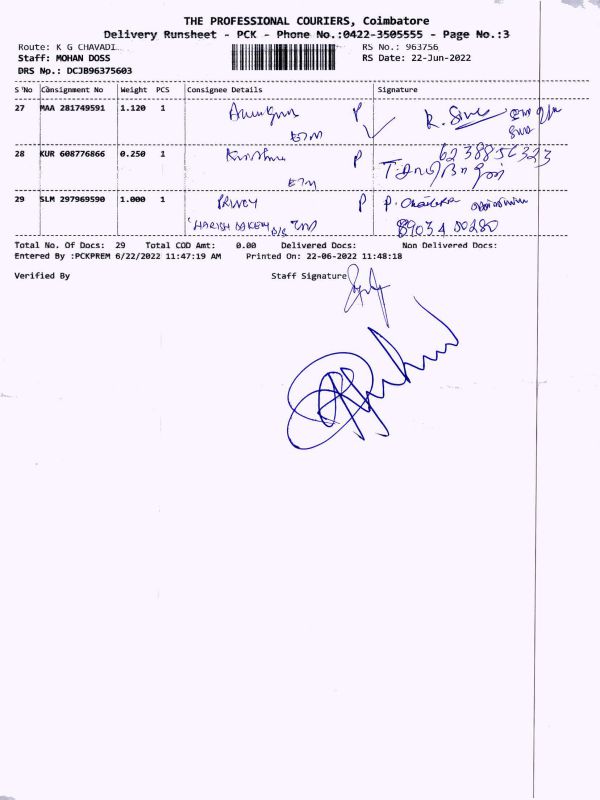 THE PROFESSIONAL COURIERS, Coimbatore
Delivery Runsheet - PCK - Phone No.:0422-3505555 - Page No.:3
Route: K G CHAVADI RS No.: 963756
Staff: MOHAN DOSS RS Date: 22-Jun-2022
DRS No.: DCJB96375603
S'No Consignment No Weight PCS Consignee Details Signature
27 MAA 281749591 1.120 1 P
28 KUR 608776866 0.250 1 P
29 SLM 297969590 1.000 1 P
89034 00280
Total No. Of Docs: 29 Total COD Amt: 0.00 Delivered Docs: Non Delivered Docs:
Entered By :PCKPREM 6/22/2022 11:47:19 AM Printed On: 22-06-2022 11:48:18
Verified By Staff Signature